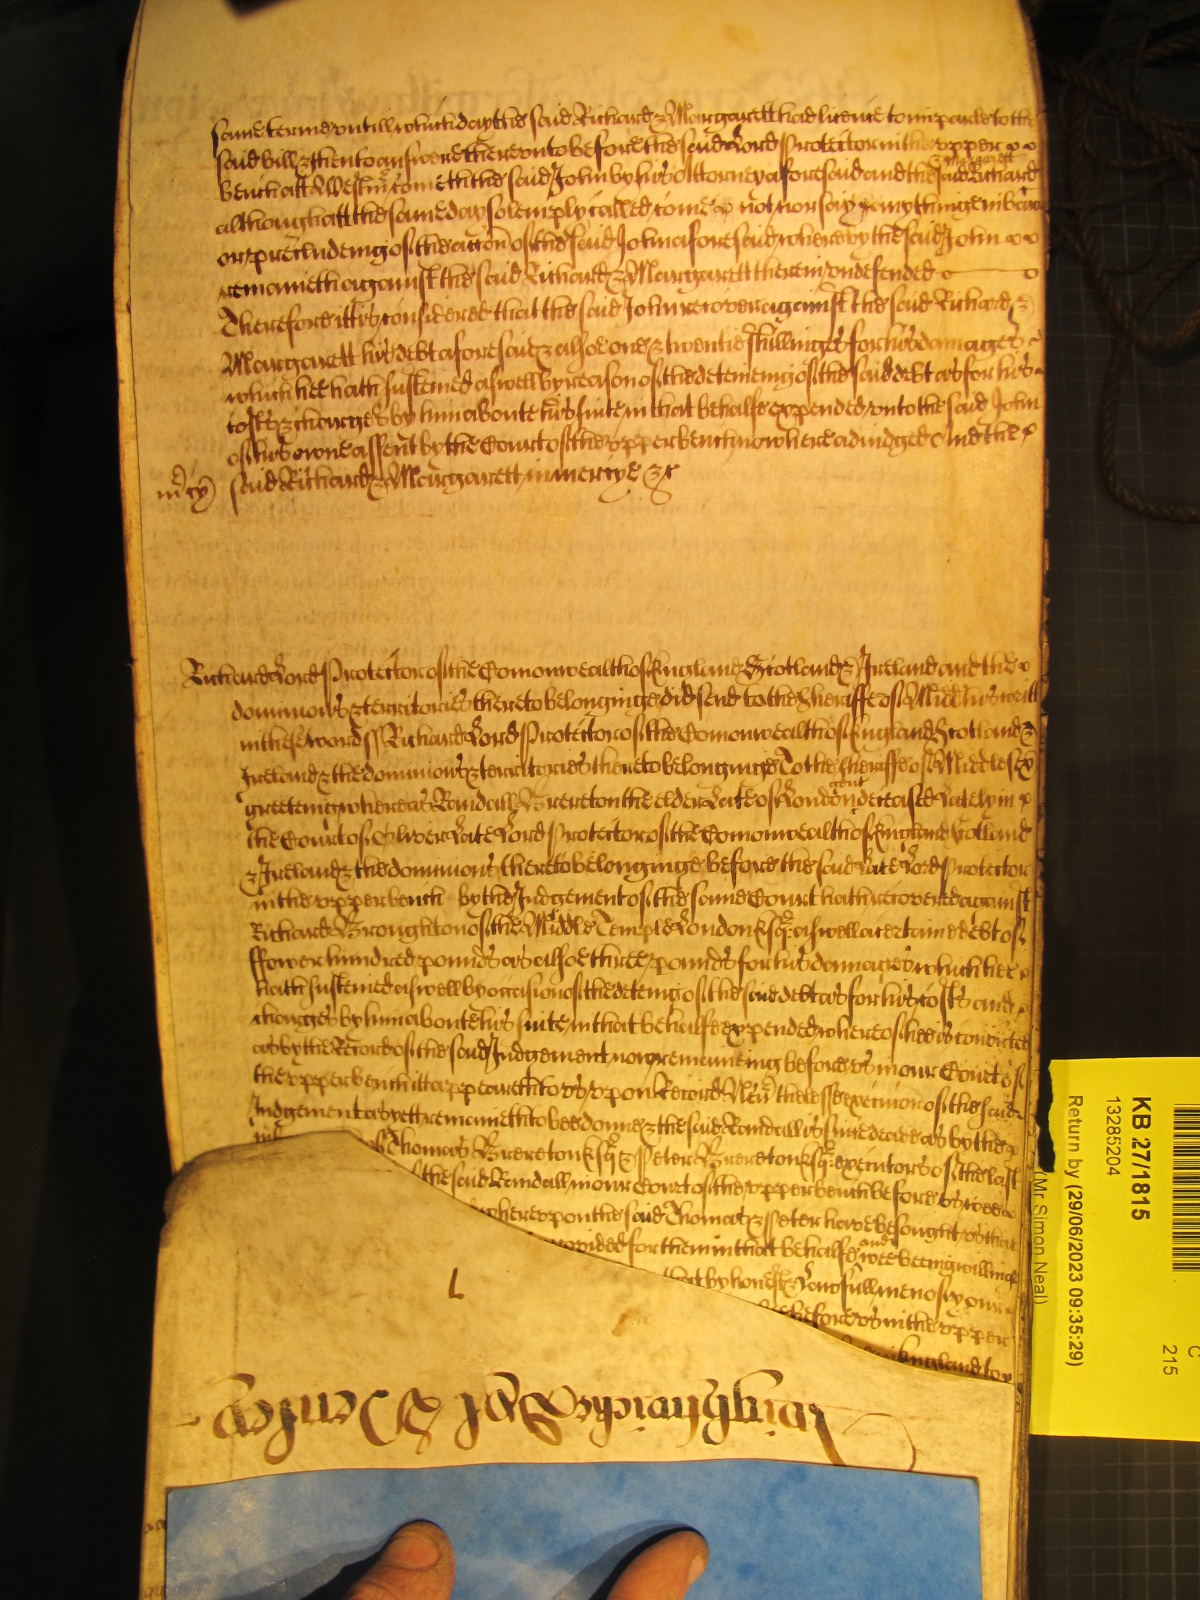 same terme untill which day the said Richard & Margarett had licence to imparle to the
said bill & then to answere thereunto before the said Lord Protector in the upper
bench att Westm̃ cometh the said John by his Attorney aforesaid and the said Richard & Margarett
although att the same day solemply called come not nor say any thinge in barr
or precludeing of the accõn of the said John aforesaid whereby the said John
remaineth against the said Richard & Margarett therein undefended
Therefore itt is considered that the said John recover against the said Richard &
Margarett his debt aforesaid & alsoe one & twentie shillinges for his damages
which hee hath susteined aswell by reason of the deteineing of the said debt as for his
costs & charges by him aboute his suite in that behalfe expended unto the said John
of his owne assent by the Court of the upper bench now here adiudged And the
said Richard & Margarett in mercye &c
m̃cy
Richard Lord Protector of the Comonwealth of England Scotland & Ireland and the
dominions & territories thereto belonginge did send to the Sheriffe of Midd his writt
in these words ss Richard Lord Protector of the Comonwealth of England Scotland &
Ireland & the dominions & territories thereto belonginge To the Sheriffe of Middlesex
greeteing whereas Randall Brereton the elder late of London gent deceased lately in
the Court of Oliver late Lord Protector of the Comonwealth of England Scotland
& Ireland & the dominions thereto belonginge before the said late Lord Protector
in the upper bench by the Iudgement of the same Court hath recovered against
Richard Broughton of the Middle Temple London Esqr aswell a certaine debt of
ffower hundred pounds as alsoe three pounds for his damages which hee
hath susteined aswell by occasion of the deteing of the said debt as for his costs and
charges by him aboute his suite in that behalfe expended whereof hee is convicted
as by the Record of the said Iudgement now remaineing before us in our Court of
the upper bench itt appeareth to us upon Record Neũtheless execucion of the said
Iudgement as yett remaineth to bee donne & the said Randall is since dead as by the
Thomas Brereton Esqr & Peter Brereton Esqr executors of the last
the said Randall in our Court of the upper bench before us
whereupon the said Thomas & Peter have besought us that
provided for them in that behalfe and wee beeing willinge
that by honest & lawfull men of your
before us in the upper
England to
L
KB 27/1815
13285204
Return by (29/06/2023 09:35:29)
(Mr Simon Neal)
C
215